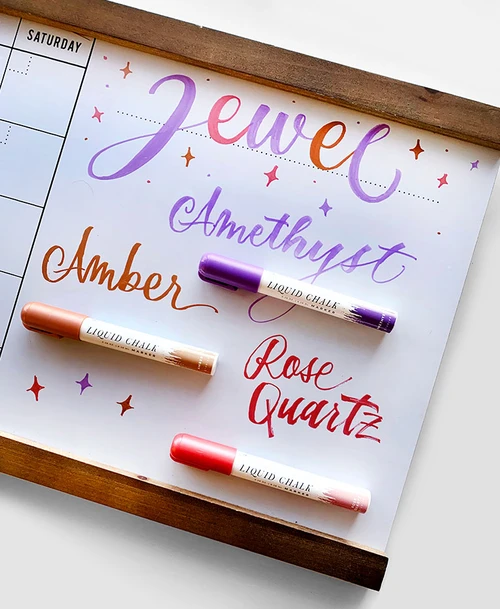 SATURDAY
Jewel
Amethyst
Amber
LIQUID CHALK
MARKER
LIQUID CHALK
MARKER
Rose
Quartz
LIQUID CHALK
MARKER